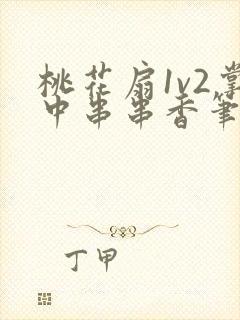 桃花扇1v2掌
中串串香筆
丁甲